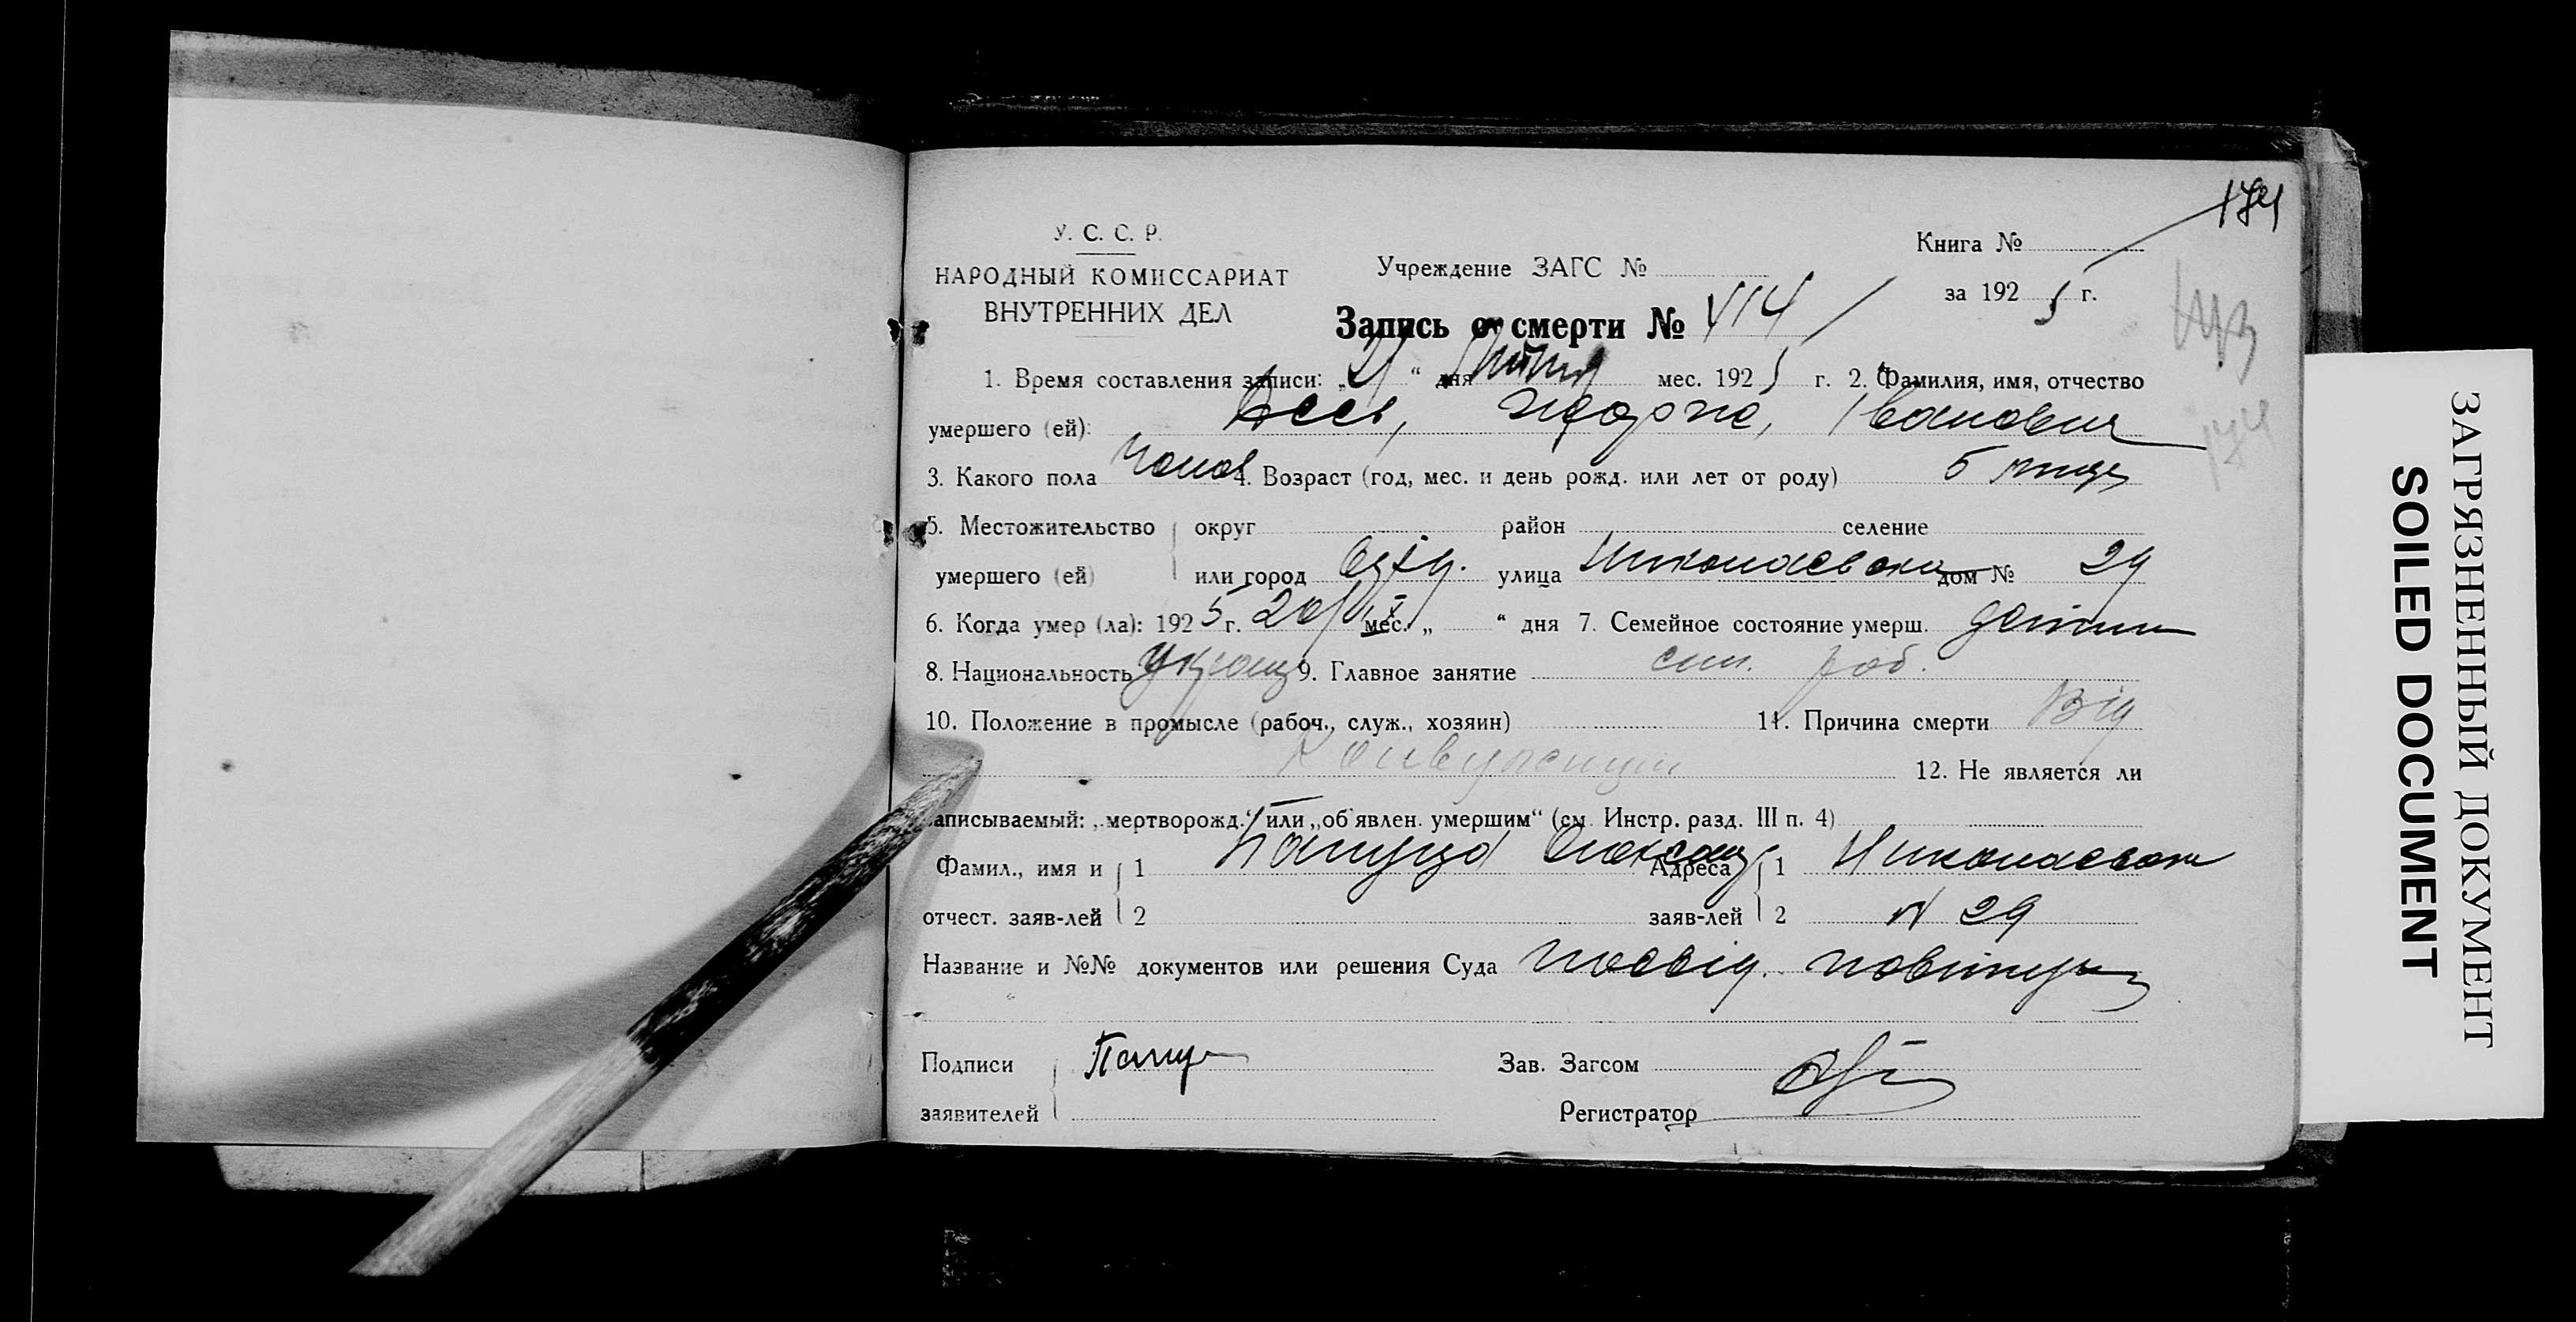 174
У. С. С. Р.
НАРОДНЫЙ КОМИССАРИАТ
ВНУТРЕННИХ ДЕЛ
Учреждение ЗАГС №
Книга №
за 192 5 г.
Запись о смерти № 414
1. Время составления записи: „21“ дня мес. 192 5 г. 2. Фамилия, имя, отчество
умершего (ей): Жорж, Іванович
3. Какого пола чолов 4. Возраст (год, мес. и день рожд. или лет от роду) 5
174
5. Местожительство округ район селение
умершего (ей) или город улица Николаевска дом № 29
6. Когда умер (ла): 192 5 г. 20/IX мес. „ “ дня 7. Семейное состояние умерш.
8. Национальность Украин 9. Главное занятие роб.
10. Положение в промысле (рабоч., служ., хозяин) 11. Причина смерти Від
Конвульсии 12. Не является ли
записываемый: „мертворожд.“ или „об'явлен. умершим“ (см. Инстр. разд. III п. 4)
Фамил., имя и 1 Адреса 1 Николаевск
отчест. заяв-лей 2 заяв-лей 2 № 29
Название и №№ документов или решения Суда посвід.
Подписи Зав. Загсом
заявителей Регистратор
ЗАГРЯЗНЕННЫЙ ДОКУМЕНТ
SOILED DOCUMENT